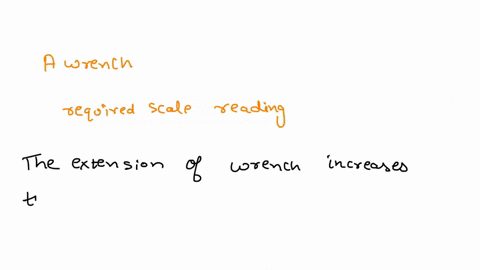 A wrench
required scale reading
The extension of wrench increases